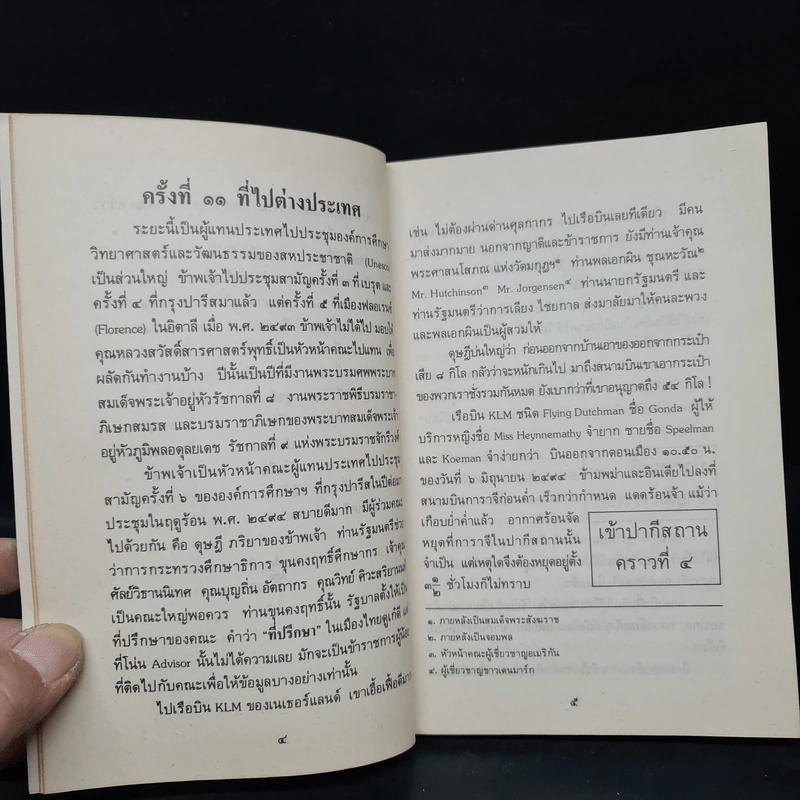 ครั้งที่ ๑๑ ที่ไปต่างประเทศ
ระยะนี้เป็นผู้แทนประเทศไปประชุมองค์การศึกษา
วิทยาศาสตร์และวัฒนธรรมของสหประชาชาติ (Unesco)
เป็นส่วนใหญ่ ข้าพเจ้าไปประชุมสามัญครั้งที่ ๓ ที่เบรุต และ
ครั้งที่ ๔ ที่กรุงปารีสมาแล้ว แต่ครั้งที่ ๕ ที่เมืองฟลอเรนซ์
(Florence) ในอิตาลี เมื่อ พ.ศ. ๒๔๙๓ ข้าพเจ้าไม่ได้ไป มอบให้
คุณหลวงสวัสดิ์สารศาสตร์พุทธิ์เป็นหัวหน้าคณะไปแทน เพื่อ
ผลัดกันทำงานบ้าง ปีนั้นเป็นปีที่มีงานพระบรมศพพระบาท
สมเด็จพระเจ้าอยู่หัวรัชกาลที่ ๘ งานพระราชพิธีบรมราชา
ภิเษกสมรส และบรมราชาภิเษกของพระบาทสมเด็จพระเจ้า
อยู่หัวภูมิพลอดุลยเดช รัชกาลที่ ๙ แห่งพระบรมราชจักรีวงศ์
ข้าพเจ้าเป็นหัวหน้าคณะผู้แทนประเทศไปประชุม
สามัญครั้งที่ ๖ ขององค์การศึกษาฯ ที่กรุงปารีสในปีต่อมา
ประชุมในฤดูร้อน พ.ศ. ๒๔๙๔ สบายดีมาก มีผู้ร่วมคณะ
ไปด้วยกัน คือ ดุษฎี ภริยาของข้าพเจ้า ท่านรัฐมนตรีช่วย
ว่าการกระทรวงศึกษาธิการ ขุนคงฤทธิ์ศึกษากร เจ้าคุณ
ศัลย์วิธานนิเทศ คุณบุญถิ่น อัตถากร คุณวิทย์ ศิวะสริยานนท์
เป็นคณะใหญ่พอควร ท่านขุนคงฤทธิ์นั้น รัฐบาลตั้งให้เป็น
ที่ปรึกษาของคณะ คำว่า "ที่ปรึกษา" ในเมืองไทยดูเก๋ดี แต่
ที่โน่น Advisor นั้นไม่ได้ความเลย มักจะเป็นข้าราชการผู้น้อย
ที่ติดไปกับคณะเพื่อให้ข้อมูลบางอย่างเท่านั้น
ไปเรือบิน KLM ของเนเธอร์แลนด์ เขาเอื้อเฟื้อดีมาก
๔
เช่น ไม่ต้องผ่านด่านศุลกากร ไปเรือบินเลยทีเดียว มีคน
มาส่งมากมาย นอกจากญาติและข้าราชการ ยังมีท่านเจ้าคุณ
พระศาสนโสภณ แห่งวัดมกุฎฯ๑ ท่านพลเอกผิน ชุณหะวัณ๒
Mr. Hutchinson๓ Mr. Jorgensen๔ ท่านนายกรัฐมนตรี และ
ท่านรัฐมนตรีว่าการเลียง ไชยกาล ส่งมาลัยมาให้คนละพวง
และพลเอกผินเป็นผู้สวมให้
ดุษฎีบ่นใหญ่ว่า ก่อนออกจากบ้านเอาของออกจากกระเป๋า
เสีย ๘ กิโล กลัวว่าจะหนักเกินไป มาถึงสนามบินเขาเอากระเป๋า
ของพวกเราชั่งรวมกันหมด ยังเบากว่าที่เขาอนุญาตถึง ๕๔ กิโล !
เรือบิน KLM ชนิด Flying Dutchman ชื่อ Gonda ผู้ให้
บริการหญิงชื่อ Miss Heynnemathy จำยาก ชายชื่อ Speelman
และ Koeman จำง่ายกว่า บินออกจากดอนเมือง ๑๐.๕๐ น.
ของวันที่ ๖ มิถุนายน ๒๔๙๔ ข้ามพม่าและอินเดียไปลงที่
สนามบินการาจีก่อนค่ำ เร็วกว่ากำหนด แดดร้อนจ้า แม้ว่า
เกือบย่ำค่ำแล้ว อากาศร้อนจัด
หยุดที่การาจีในปากีสถานนั้น
จำเป็น แต่เหตุใดจึงต้องหยุดอยู่ตั้ง
๓ ๑/๒ ชั่วโมงก็ไม่ทราบ
เข้าปากีสถาน
คราวที่ ๔
๑. ภายหลังเป็นสมเด็จพระสังฆราช
๒. ภายหลังเป็นจอมพล
๓. หัวหน้าคณะผู้เชี่ยวชาญอเมริกัน
๔. ผู้เชี่ยวชาญชาวเดนมาร์ก
๕